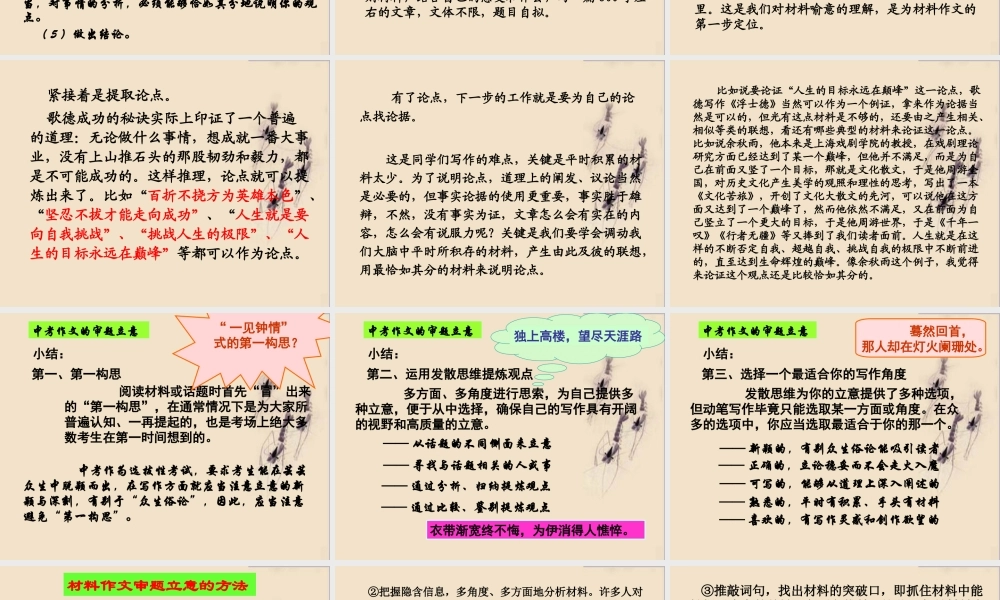 当，对事情的分析，必须能够恰如其分地说明你的观
点。
（5）做出结论。
右的文章，文体不限，题目自拟。
里。这是我们对材料喻意的理解，是为材料作文的
第一步定位。
紧接着是提取论点。
歌德成功的秘诀实际上印证了一个普遍
的道理：无论做什么事情，想成就一番大事
业，没有上山推石头的那股韧劲和毅力，都
是不可能成功的。这样推理，论点就可以提
炼出来了。比如“百折不挠方为英雄本色”、
“坚忍不拔才能走向成功”、“人生就是要
向自我挑战”、“挑战人生的极限”、“人
生的目标永远在巅峰”等都可以作为论点。
有了论点，下一步的工作就是要为自己的论
点找论据。
这是同学们写作的难点，关键是平时积累的材
料太少。为了说明论点，道理上的阐发、议论当然
是必要的，但事实论据的使用更重要，事实胜于雄
辩，不然，没有事实为证，文章怎么会有实在的内
容，怎么会有说服力呢？关键是我们要学会调动我
们大脑中平时所积存的材料，产生由此及彼的联想，
用最恰如其分的材料来说明论点。
比如说要论证“人生的目标永远在巅峰”这一论点，歌
德写作《浮士德》当然可以作为一个例证，拿来作为论据当
然是可以的，但光有这点材料是不够的，还要由之产生相关、
相似等类的联想，看还有哪些典型的材料来论证这一论点。
比如说余秋雨，他本来是上海戏剧学院的教授，在戏剧理论
研究方面已经达到了某一个巅峰，但他并不满足，而是为自
己在前面又竖了一个目标，那就是文化散文，于是他周游全
国，对历史文化产生美学的观照和理性的思考，写出了一本
《文化苦旅》，开创了文化大散文的先河，可以说他在这方
面又达到了一个巅峰了，然而他依然不满足，又在前面为自
己竖立了一个更大的目标，于是他周游世界，于是《千年一
叹》《行者无疆》等又捧到了我们读者面前。人生就是在这
样的不断否定自我、超越自我、挑战自我的极限中不断前进
的，直至达到生命辉煌的巅峰。像余秋雨这个例子，我觉得
来论证这个观点还是比较恰如其分的。
中考作文的审题立意
“一见钟情”
式的第一构思？
小结：
第一、第一构思
阅读材料或话题时首先“冒”出来
的“第一构思”，在通常情况下是为大家所
普遍认知、一再提起的，也是考场上绝大多
数考生在第一时间想到的。
中考作为选拔性考试，要求考生能在芸芸
众生中脱颖而出，在写作方面就应当注意立意的新
颖与深刻，有别于“众生俗论”，因此，应当注意
避免“第一构思”。
中考作文的审题立意
独上高楼，望尽天涯路
小结：
第二、运用发散思维提炼观点
多方面、多角度进行思索，为自己提供多
种立意，便于从中选择，确保自己的写作具有开阔
的视野和高质量的立意。
——从话题的不同侧面来立意
——寻找与话题相关的人或事
——通过分析、归纳提炼观点
——通过比较、鉴别提炼观点
衣带渐宽终不悔，为伊消得人憔悴。
中考作文的审题立意
蓦然回首，
那人却在灯火阑珊处。
小结：
第三、选择一个最适合你的写作角度
发散思维为你的立意提供了多种选项，
但动笔写作毕竟只能选取某一方面或角度。在众
多的选项中，你应当选取最适合于你的那一个。
——新颖的，有别众生俗论能吸引读者
——正确的，立论稳妥而不会走火入魔
——可写的，能够从道理上深入阐述的
——熟悉的，平时有积累、手头有材料
——喜欢的，有写作灵感和创作欲望的
材料作文审题立意的方法
②把握隐含信息，多角度、多方面地分析材料。许多人对
③推敲词句，找出材料的突破口，即抓住材料中能